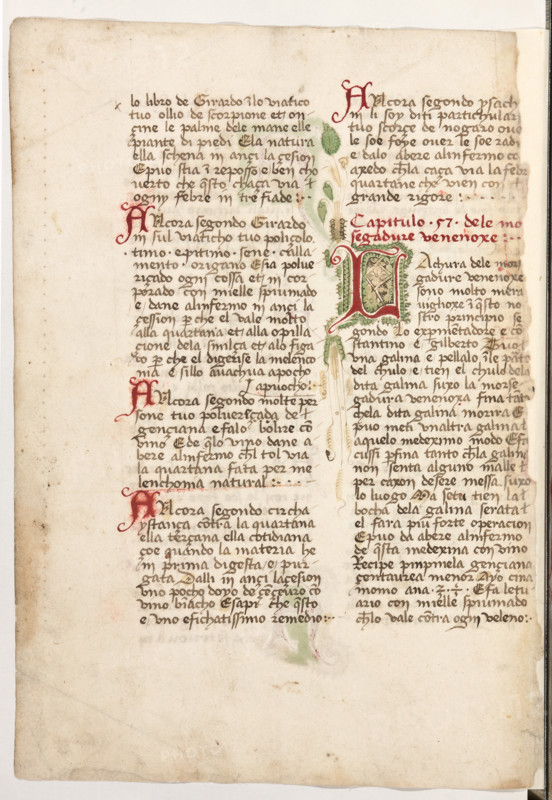 lo libro de Girardo ĩlo viatico
tuo ollio de scorpione et on
cine le palme dele mane elle
piante di piedi Ela natura
ella schena in anci la cesion
Epuo stia ĩ reposso e ben cho
uerto che q̃sto chaça via
ogni febre in tre fiade :
Ancora segondo Girardo
in sul viaticho tuo policolo.
timo. epitimo. sene. calla
mento. origano Esia polue
riçado ogni cossa et in cor
porado con mielle spiumado
e dane alinfermo in anci la
cession p che el vale molto
alla quartana et alla opilla
cione dela smilça et alo figa
to p che el digerise la melenco
nia E sillo auachua apocho
apuocho:
Ancora segondo molte per
sone tuo polueriçada de
gençiana e falo bolire cõ
vino E de q̃lo vino dane a
bere alinfermo ch̃l tol via
la quartana fata per me
lenchoma natural :
Ancora segondo circha
ystança cõtra la quartana
ella terçana ella cotidiana
çoe quando la materia he
in prima digesta e pur
gata Dalli in anci lacesion
vno pocho de
vino biacho Esapi che q̃sto
e vno efichatissimo remedio:
Ancora segondo ysach
in li soy diti partichular
tuo scorçe de nogaro ouo
le soe foye ouer le soe rad
e dalo abere alinfermo cõ
axedo ch̃la caça via la febr
quartane che vien con
grande rigore :
Capitulo . 57 . dele mo
segadure venenoxe :
Lachura dele mor
gadure venenoxe
sono molto mera
uighoxe ĩ q̃sto no
stro principio se
gondo lo expimẽtadore e cõ
stantino e gilberto
vna galina e pellalo ĩle
del chulo e tien el chulo dela
dita galina suxo la morse
gadura venenoxa fina tãt
chela dita galina morira E
puo meti vnaltra galina
aquelo medeximo modo Efa
cussi p fina tanto ch̃la galina
non senta alguno malle
per caxon desere messa suxo
lo luogo Ma sotu tien la
bocha dela galina serata
el fara piu forte operacion
Epuo da abere alinfermo
de q̃sta medexina con vino
Recipe pinpinela gençiana
centaurea menor Ayo cina
momo ana ʒ Efa letu
ario con mielle spiumado
ch̃lo vale cõtra ogni veleno: